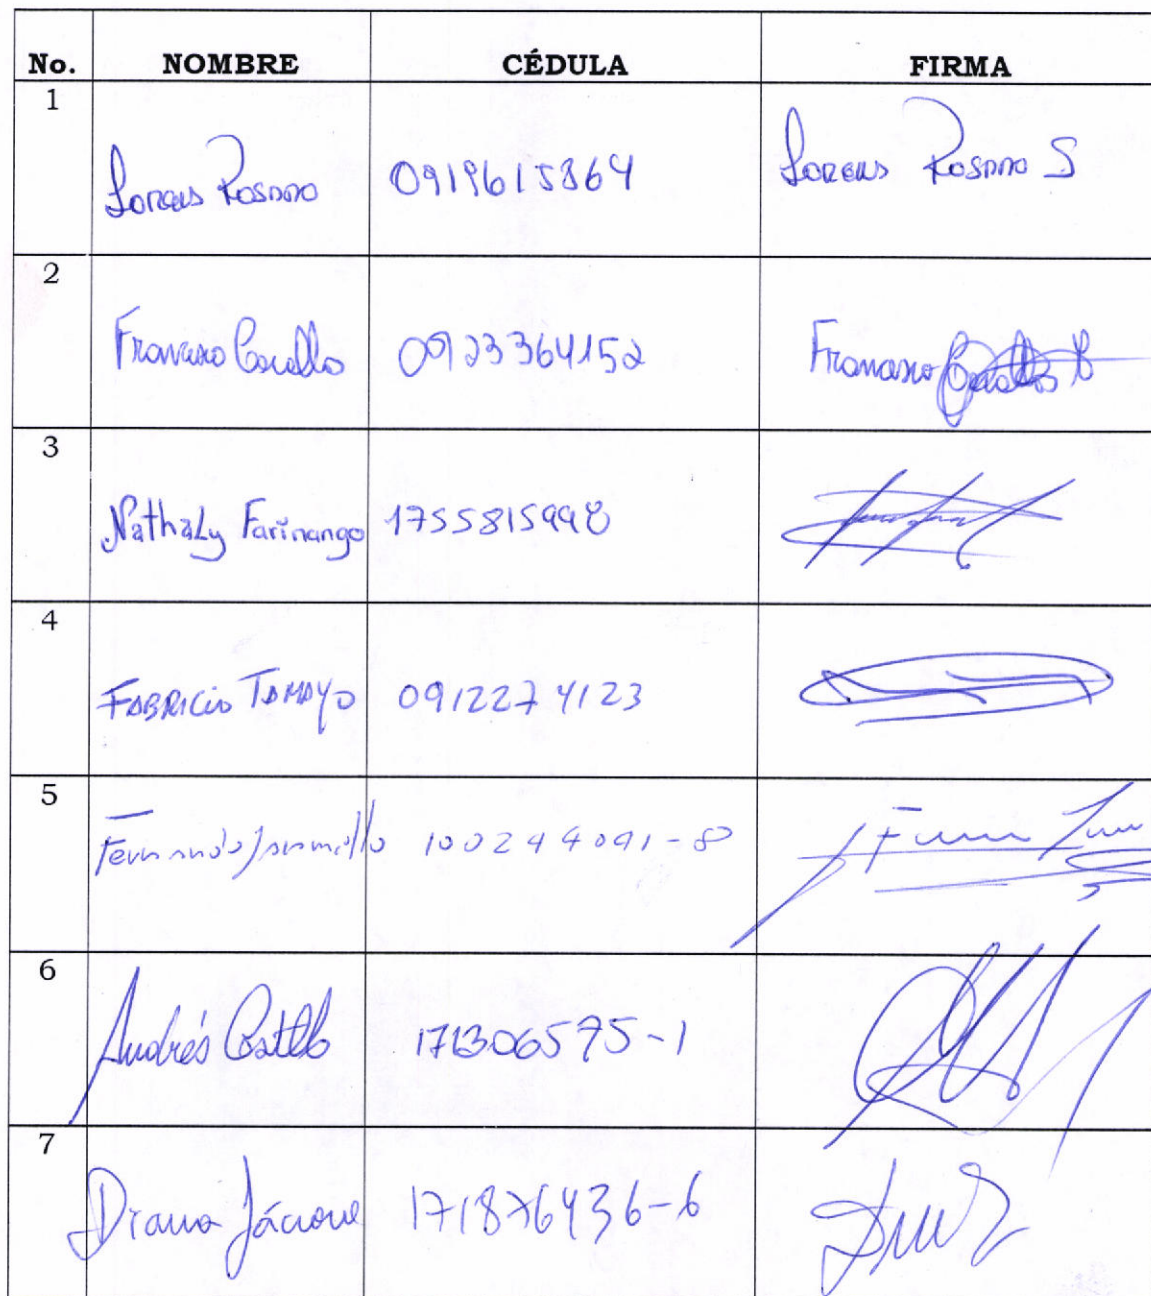 No. NOMBRE CÉDULA FIRMA
1
Lorena Rosado 0919615364 Lorena Rosado S
2
Francisco Cevallos 0923364152 Francisco Cevallos
3
Nathaly Farinango 1755815998
4
FABRICIO TAMAYO 0912274123
5
Fernando Jaramillo 100244091-8
6
Andrés Castillo 171306575-1
7
Diana Jácome 171876436-6